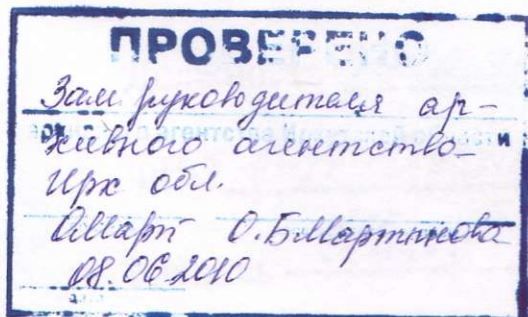 ПРОВЕРЕНО
Зам. руководителя ар-
хивного агентства
Ирк обл.
О.Б.Мартынова
08.06.2010